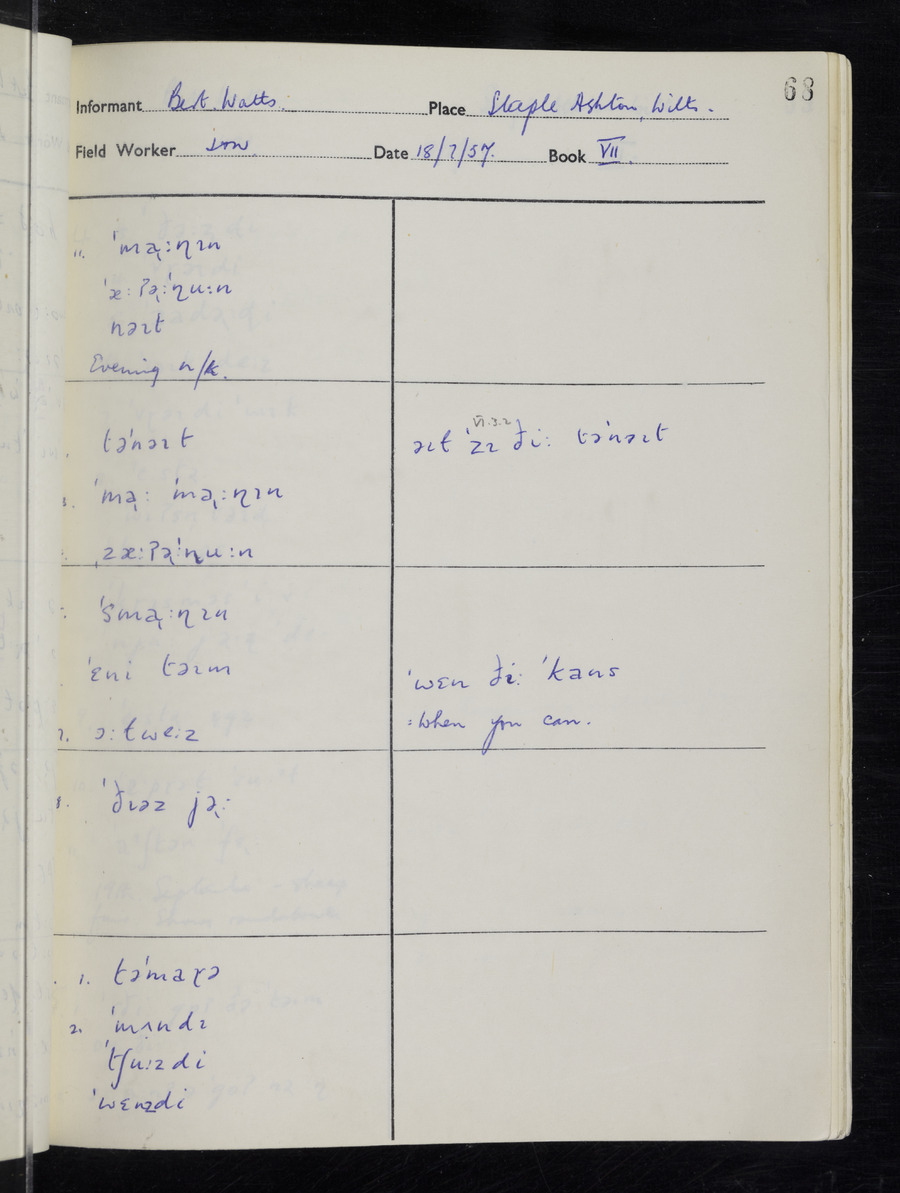 68
Informant Bert Watts. Place Steeple Ashton, Wilts.
Field Worker Date 18/7/57. Book VII.
11. ˈmə̢:ɳɪn
ˈæ:ʔə̢:ˈɳu:n
nəɪt
Evening n/k.
təˈnəɪt
3. ˈmə̢: ˈmə̢:ɳɪn
ˌzæ:ʔə̢:ˈɳu:n
VI.3.2
əɪt ˈzɪ ði: təˈnəɪt
5. ˈsmə̢:ɳɪn
ˈɛni təɪm
7. ɔ:tweɪz
ˈwɛn ði: ˈkans
= when you can.
8. ˈðɪəz jə̢:
1. təˈmaɽə
2. ˈmʌndɪ
ˈtʃu:zdi
ˈwɛnzdi